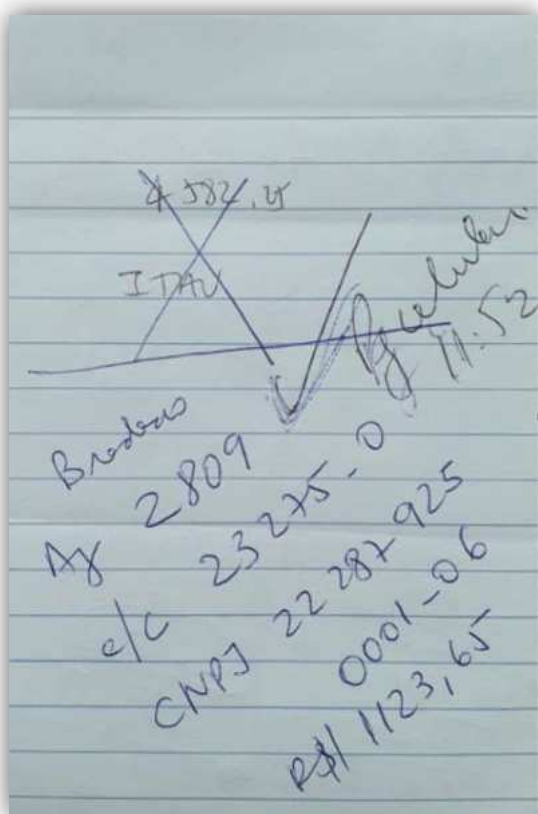 4582,25
ITAU
11:52
Bradesco
Ag 2809
c/c 23275-0
CNPJ 22287925
0001-06
R$ 1123,65